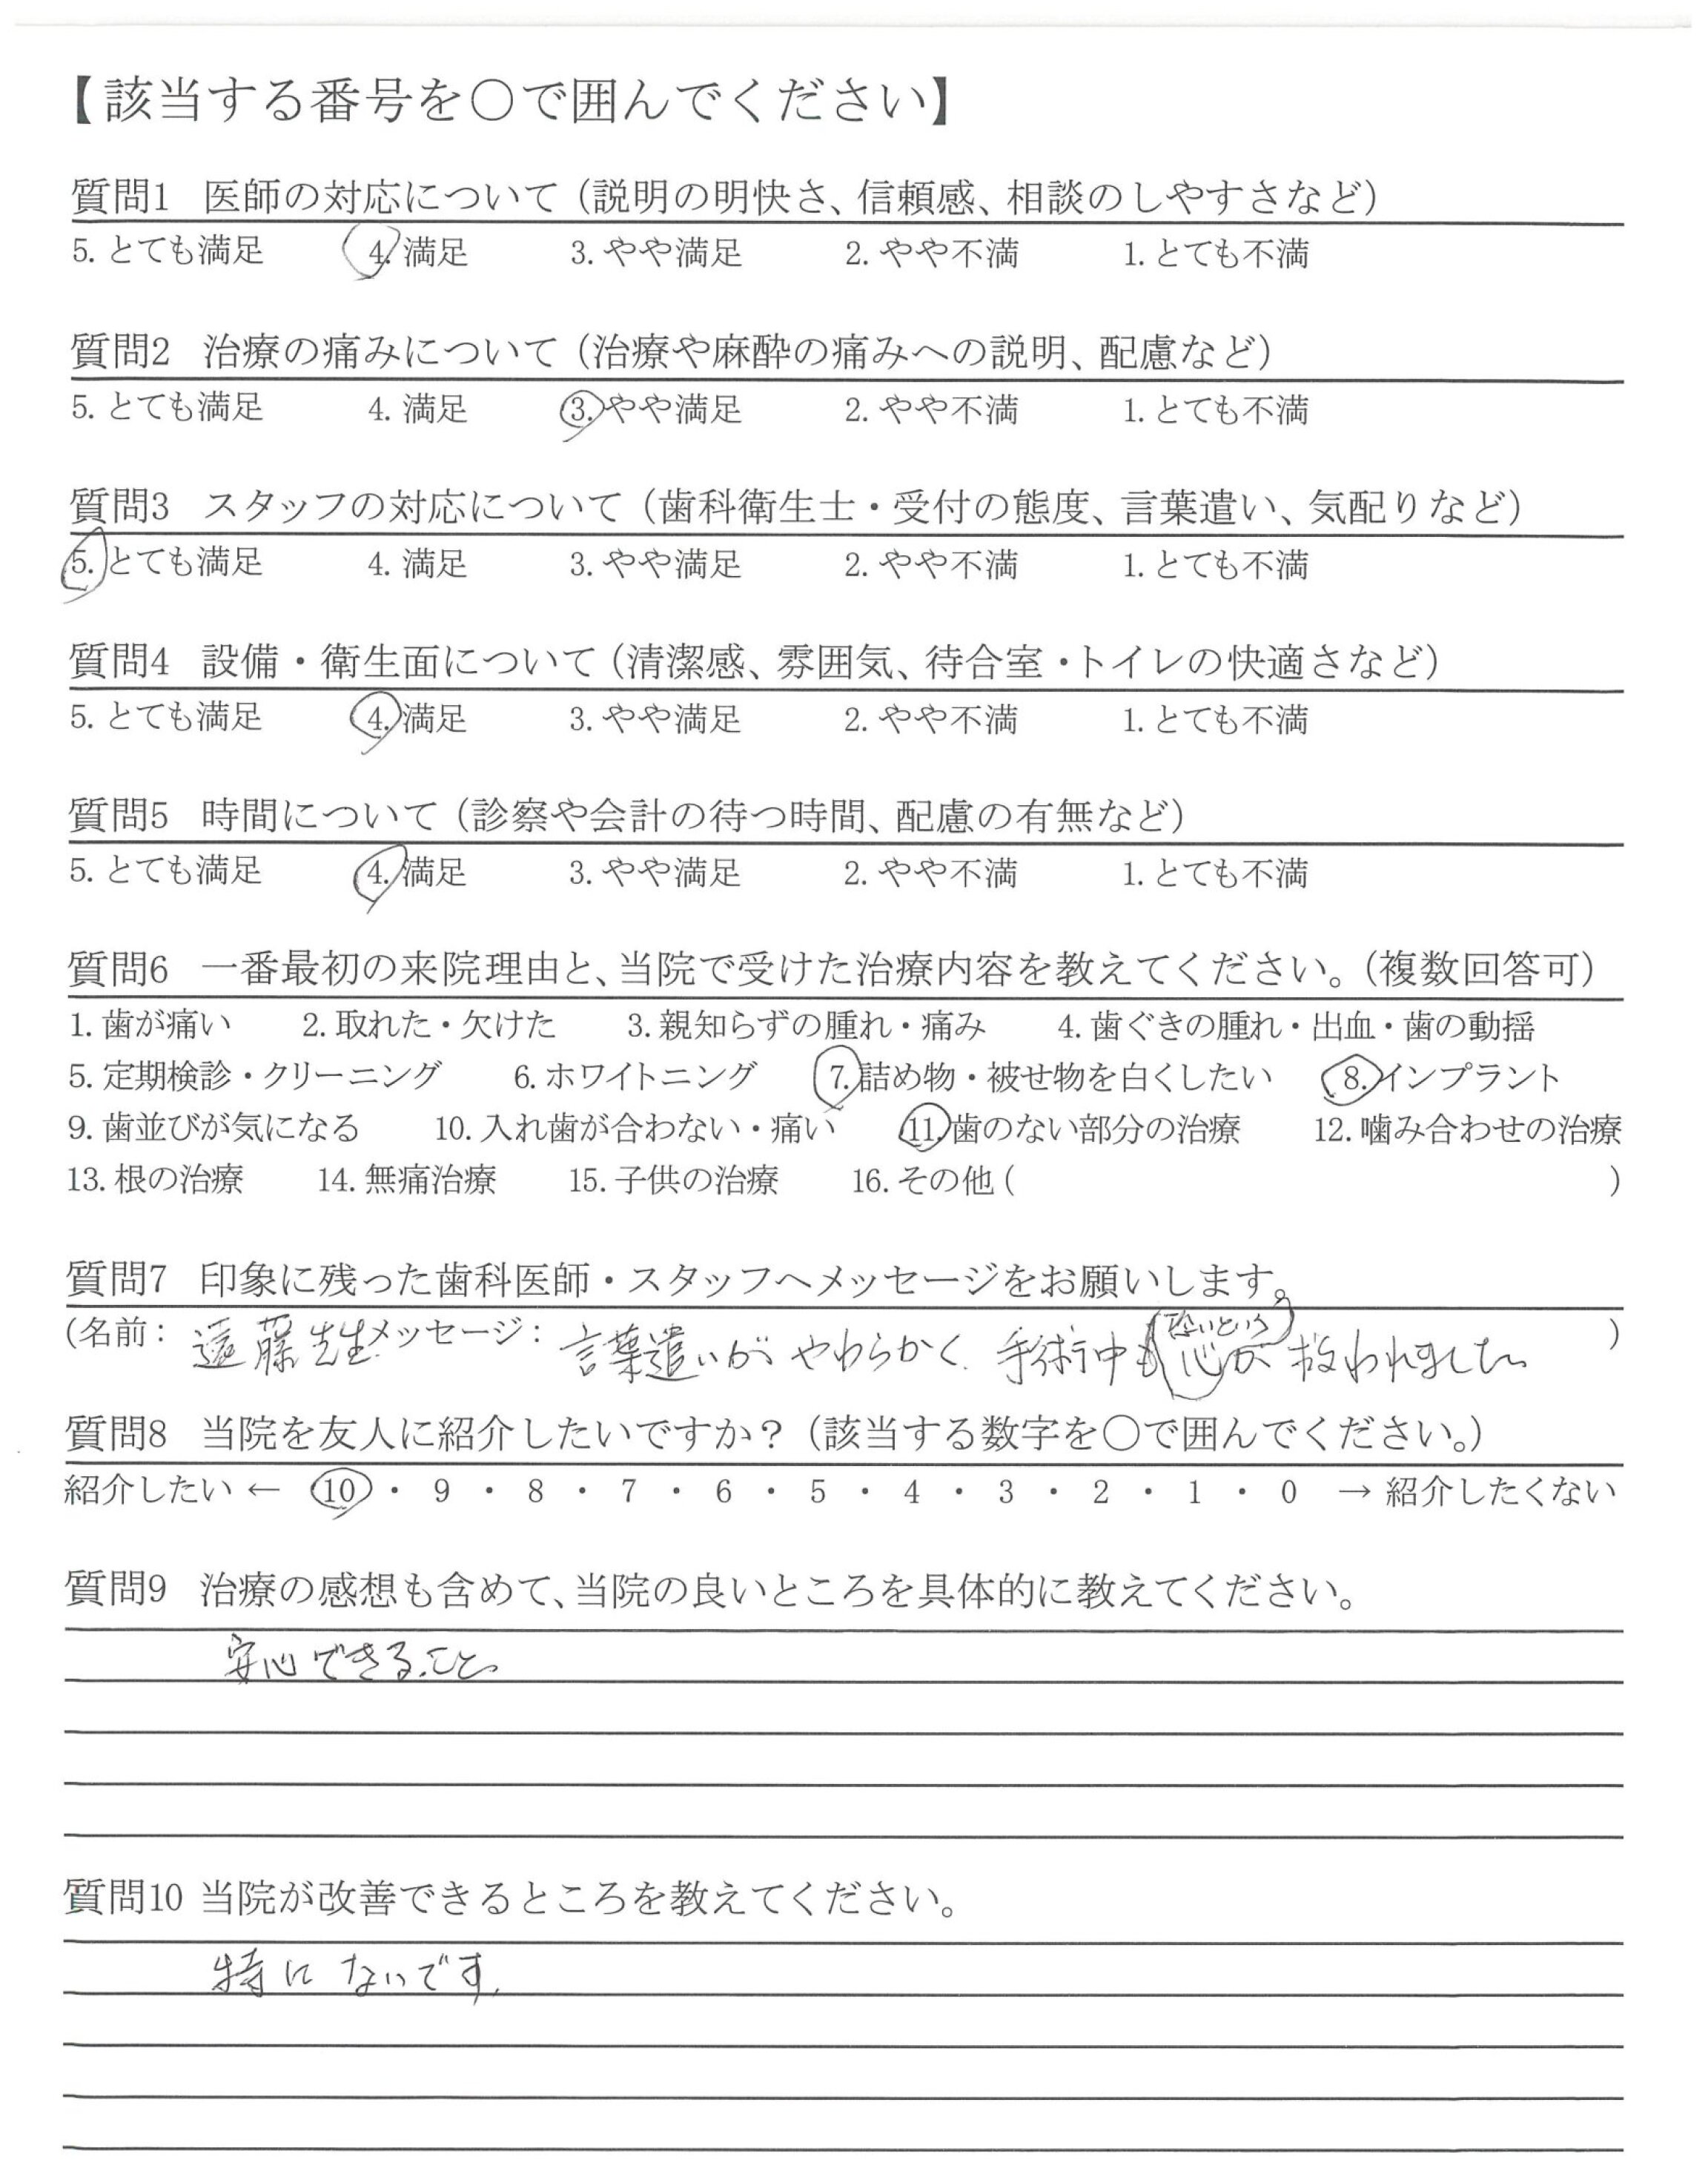 【該当する番号を○で囲んでください】
質問1 医師の対応について（説明の明快さ、信頼感、相談のしやすさなど）
5. とても満足 4. 満足 3. やや満足 2. やや不満 1. とても不満
質問2 治療の痛みについて（治療や麻酔の痛みへの説明、配慮など）
5. とても満足 4. 満足 3. やや満足 2. やや不満 1. とても不満
質問3 スタッフの対応について（歯科衛生士・受付の態度、言葉遣い、気配りなど）
5. とても満足 4. 満足 3. やや満足 2. やや不満 1. とても不満
質問4 設備・衛生面について（清潔感、雰囲気、待合室・トイレの快適さなど）
5. とても満足 4. 満足 3. やや満足 2. やや不満 1. とても不満
質問5 時間について（診察や会計の待つ時間、配慮の有無など）
5. とても満足 4. 満足 3. やや満足 2. やや不満 1. とても不満
質問6 一番最初の来院理由と、当院で受けた治療内容を教えてください。（複数回答可）
1. 歯が痛い 2. 取れた・欠けた 3. 親知らずの腫れ・痛み 4. 歯ぐきの腫れ・出血・歯の動揺
5. 定期検診・クリーニング 6. ホワイトニング 7. 詰め物・被せ物を白くしたい 8. インプラント
9. 歯並びが気になる 10. 入れ歯が合わない・痛い 11. 歯のない部分の治療 12. 噛み合わせの治療
13. 根の治療 14. 無痛治療 15. 子供の治療 16. その他 ( )
質問7 印象に残った歯科医師・スタッフへメッセージをお願いします。
(名前： 遠藤先生 メッセージ： 言葉遣いが やわらかく 手術中も 恐いという 心が 救われました )
質問8 当院を友人に紹介したいですか？（該当する数字を○で囲んでください。）
紹介したい ← 10 ・ 9 ・ 8 ・ 7 ・ 6 ・ 5 ・ 4 ・ 3 ・ 2 ・ 1 ・ 0 → 紹介したくない
質問9 治療の感想も含めて、当院の良いところを具体的に教えてください。
安心できること。
質問10 当院が改善できるところを教えてください。
特に ないです。